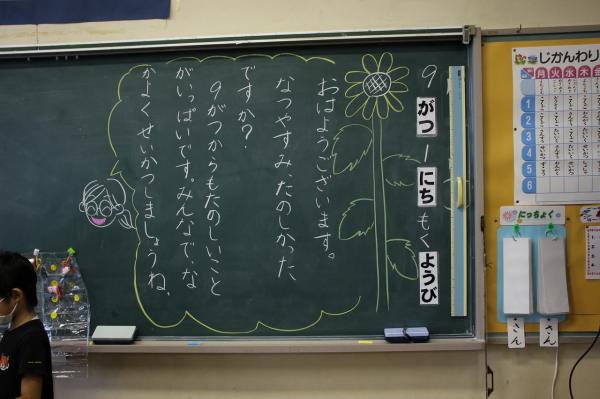 9がつ1にちもくようび
おはようございます。
なつやすみ、たのしかった
ですか?
9がつからもたのしいこと
がいっぱいです。みんなで、な
かよくせいかつしましょうね。
じかんわり
月火水木金
1
2
3
4
5
6
にっちょく
さん
さん